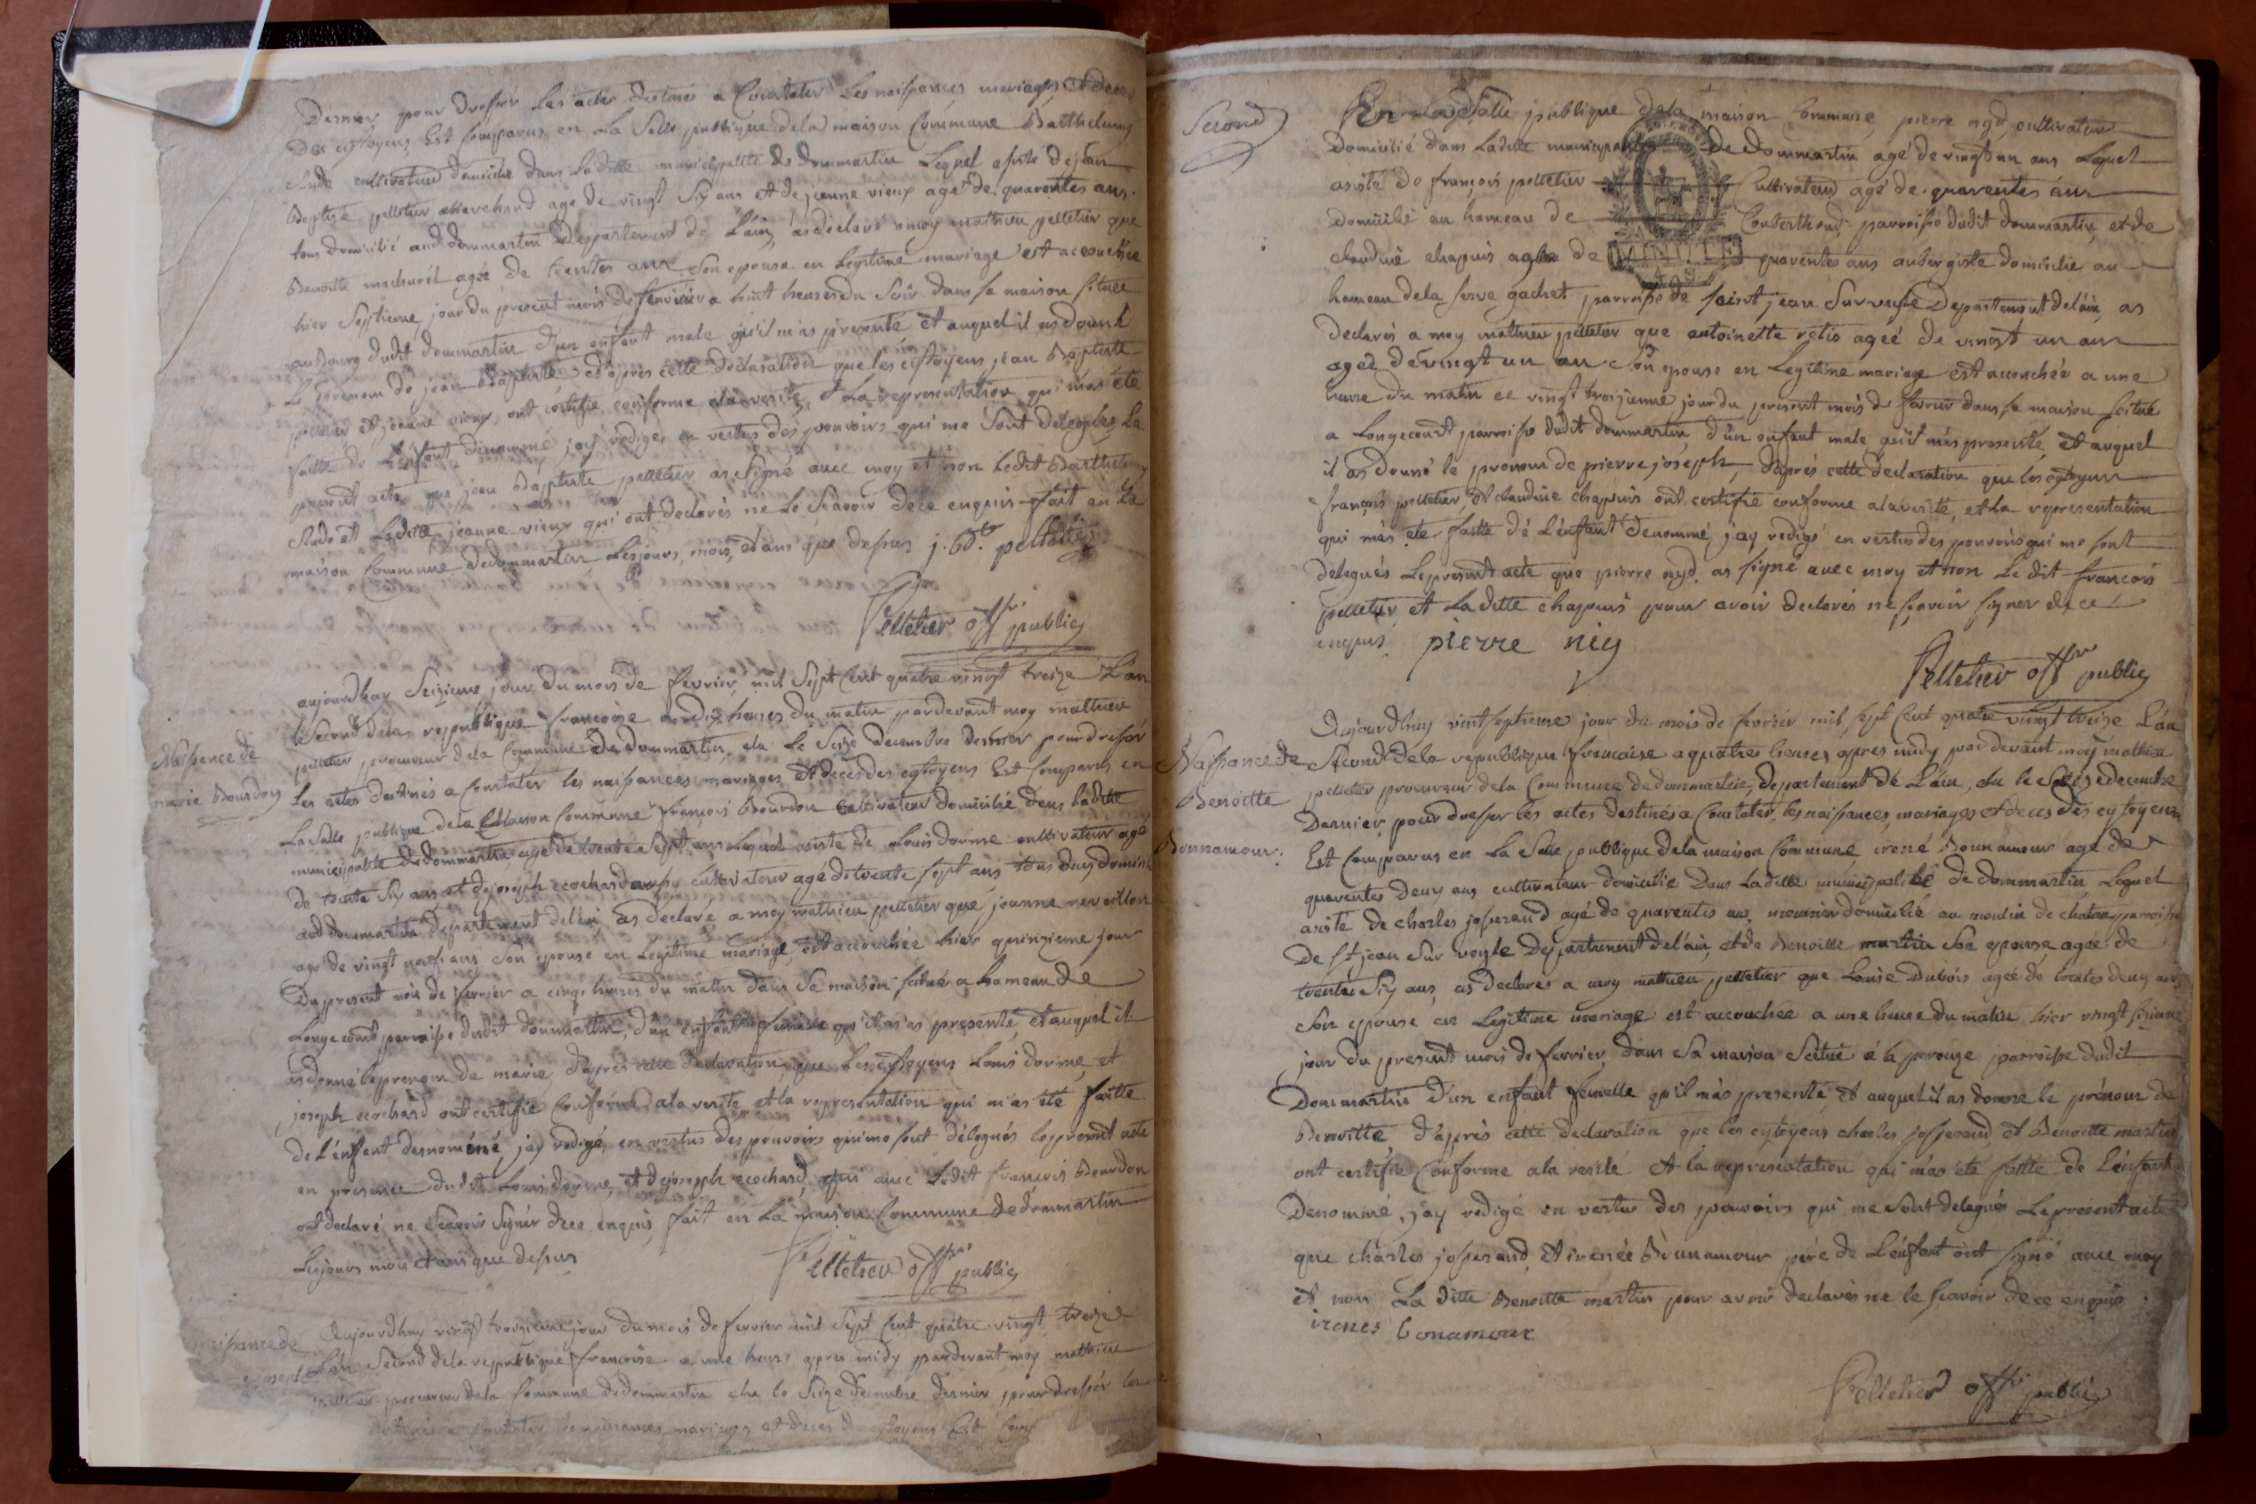 Dernier pour dresser Les actes destinés a Constater Les naissances mariages et deces
Des citoyens Est Comparus en La Salle publique dela maison Commune Barthelemy
Clude cultivateur domicilié dans Laditte municipalité de dommartin Lequel asisté de jean
Baptiste pelletier marchand agé de vingt Six ans et de jeanne vieux agée de quarentes ans
tous domicilié audit dommartin Departement de L'ain, as declaré a moy mathieu pelletier que
Benoitte agée de trentes ans Son epouse en Legitime mariage est accouchée
hier Septieme jour du present mois de fevrier a huit heures du Soir dans sa maison située
au Bourg dudit dommartin d'un enfant male qu'il m'as presenté et auquel il as donné
Le prenom de jean Baptiste d'apres cette declaration que les citoyens jean Baptiste
pelletier et jeanne vieux ont certifié conforme a la verité, et La representation qui m'as été
faitte de L'enfant denommé, j'ay redigé en vertus des pouvoirs qui me Sont delegués Le
present acte que jean Baptiste pelletier as Signé avec moy et non Ledit Barthelemy
Clude et Laditte jeanne vieux qui ont declarés ne Le Sçavoir dece enquis fait en La
maison Commune dedommartin Les jours, mois, et ans que dessus j. Bte. pelletier
Pelletier offr public
Naissance de
marie Bourdon
aujourdhuy Seizieme jour du mois de fevrier mil Sept Cent quatre vingt treize L'an
Second dela republique françoise a dix heures du matin pardevant moy mathieu
pelletier procureur dela Commune de dommartin, elu Le Seize decembre dernier pour dresser
Les actes destinés a Constater les naissances mariages et deces des cytoyens Est Comparus en
La Salle publique dela Maison Commune françois Bourdon Cultivateur domicilié dans laditte
municipalité de dommartin agé de trente Sept ans Lequel asisté de Louis dorme cultivateur agé
de trente Six ans et de joseph ecochard aussy cultivateur agé de trente sept ans tous deux domicilié
aud dommartin Departement del'ain, as declaré a moy mathieu pelletier que jeanne
age de vingt neuf ans Son epouse en Legitime mariage, est accouchée hier quinzieme jour
Du present mois de fevrier a cinq heures du matin dans Sa maison située a hameau de
Longecourt parroisse dudit dommartin, d'un enfant femelle qu'il m'as presenté, et auquel il
as donné le prenom de marie d'apres cette declaration que Les cytoyens Louis dorme, et
joseph ecochard ont certifié Conforme a la verité et la representation qui m'as été faitte
de L'enfent desnomémé, j'ay redigé en vertus des pouvoirs qui me sont délegués le present acte
en presence dudit Louis dorme, et de joseph ecochard, qui avec Ledit françois Bourdon
ont declaré ne Sçavoir Signer dece enquis, fait en La maison Commune de dommartin
Les jours mois et ans que dessus
Pelletier offr public
naissance de
Aujourdhuy vingt troizieme jour du mois de fevrier mil Sept Cent quatre vingt treize
L'an Second dela republique françoise a une heure apres midy pardevant moy mathieu
pelletier procureur dela Commune de dommartin elu le Seize decembre dernier pour dresser les
a Constater les naissances mariages et deces des cytoyens Est Comp
Second
En Laditte Salle publique dela maison Commune, pierre nyd cultivateur
Domicilié dans Laditte municipalité de Dommartin agé de vingt un ans Lequel
asisté de françois pelletier Cultivateur agé de quarentes ans
domicilié au hameau de Couberthoud parroisse dudit dommartin, et de
claudine chapuis agée de quarentes ans aubergiste domiciliée au
hameau dela serve gachet parroisse de saint jean Survesle Departement del'ain, as
Declarés a moy mathieu pelletier que antoinette retis ageé de vinngt un ans
ageé de vingt un an Son epouse en Legitime mariage est accouchée a une
heure du matin ce vingt troizieme jour du present mois de fevrier dans sa maison située
a Longecourt parroisse dudit dommartin d'un enfant male qu'il m'as presenté, et auquel
il as donné le prenom de pierre joseph, d'aprés cette declaration que les cytoyens
françois pelletier, et claudine chapuis ont certifié conforme a la verité, et la representation
qui m'as ete faitte dé L'enfant denommé, j'ay redigé en vertus des pouvoirs qui me sont
delegués Le present acte que pierre nyd as signé avec moy et non Le dit françois
pelletier, et Laditte chapuis pour avoir declarés ne sçavoir signer dece
enquis. pierre niy
Pelletier offr public
Naissance de
Benoitte
Bonnamour:
Aujourdhuy vint septieme jour du mois de fevrier mil sept Cent quatre vingt treize L'an
Second dela republique francaise a quatres heures apres midy par devant moy mathieu
pelletier procureur dela Commune de dommartin, departement de L'ain, elu le Seize decembre
Dernier, pour dresser les actes destinés a Constater, les naissances, mariages et deces des cytoyens
Est Comparus en La Salle publique dela maison Commune, irené Bonnamour agé de
quarentes Deux ans cultivateur domicilié Dans Laditte municipalité de dommartin Lequel
asisté de charles josserand agé de quarentes ans meunier domicilié au moulin de chatan parroisse
De st jean Sur veyle Departement del'ain, et de Benoitte martin Son epouse, ageé de
trente Six ans, as declares a moy mathieu pelletier que Louise Dubois ageé de trentes deux ans
Son epouse en Legitime mariage est accouchée a une heure du matin hier vingt sixieme
jour du present mois de fevrier, dans Sa maison Située a la perouze parroisse dudit
Dommartin D'un enfant femelle qu'il m'as presenté, et auquel il as donne le prénom de
Benoitte d'aprés cette declaration que les cytoyens charles josserand, et Benoitte martin
ont certifié Conforme a la verité et la representation qui m'as été faitte de L'énfant
Denommé, j'ay redigé en vertus des pouvoirs qui me Sont delegués Le present acte
que charles josserand, et irenée Bonnamour pére de L'énfant ont signé avec moy
et non La ditte Benoitte martin pour avoir declarés ne le sçavoir de ce enquis
irenes bonamour
Pelletier offr public